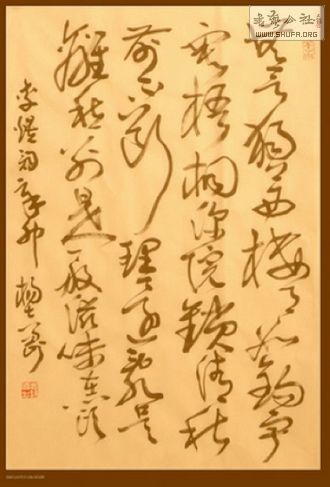 书法公社
WWW.SHUFA.ORG
无言獨上西樓月如鈎寂
寞梧桐深院鎖清秋
剪不斷理還亂是
離愁別是一般滋味在心頭
李煜詞辛卯楊